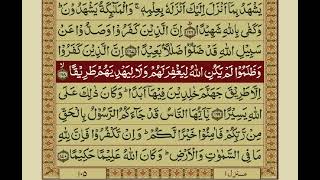 يَشْهَدُ بِمَاۤ اَنْزَلَ اِلَيْكَ اَنْزَلَهٗ بِعِلْمِهٖ ۚ وَالْمَلٰٓئِكَةُ يَشْهَدُوْنَ ؕ
وَكَفٰى بِاللّٰهِ شَهِيْدًا ﴿۱۶۶﴾ اِنَّ الَّذِيْنَ كَفَرُوْا وَصَدُّوْا عَنْ
سَبِيْلِ اللّٰهِ قَدْ ضَلُّوْا ضَلٰلًۢا بَعِيْدًا ﴿۱۶۷﴾ اِنَّ الَّذِيْنَ كَفَرُوْا
وَظَلَمُوْا لَمْ يَكُنِ اللّٰهُ لِيَغْفِرَ لَهُمْ وَلَا لِيَهْدِيَهُمْ طَرِيْقًا ﴿۱۶۸﴾
اِلَّا طَرِيْقَ جَهَنَّمَ خٰلِدِيْنَ فِيْهَاۤ اَبَدًا ؕ وَكَانَ ذٰلِكَ عَلَى
اللّٰهِ يَسِيْرًا ﴿۱۶۹﴾ يٰۤاَيُّهَا النَّاسُ قَدْ جَآءَكُمُ الرَّسُوْلُ بِالْحَقِّ
مِنْ رَّبِّكُمْ فَاٰمِنُوْا خَيْرًا لَّكُمْ ؕ وَاِنْ تَكْفُرُوْا فَاِنَّ لِلّٰهِ
مَا فِى السَّمٰوٰتِ وَالْاَرْضِ ؕ وَكَانَ اللّٰهُ عَلِيْمًا حَكِيْمًا ﴿۱۷۰﴾
منزل ۱
۱۰۵